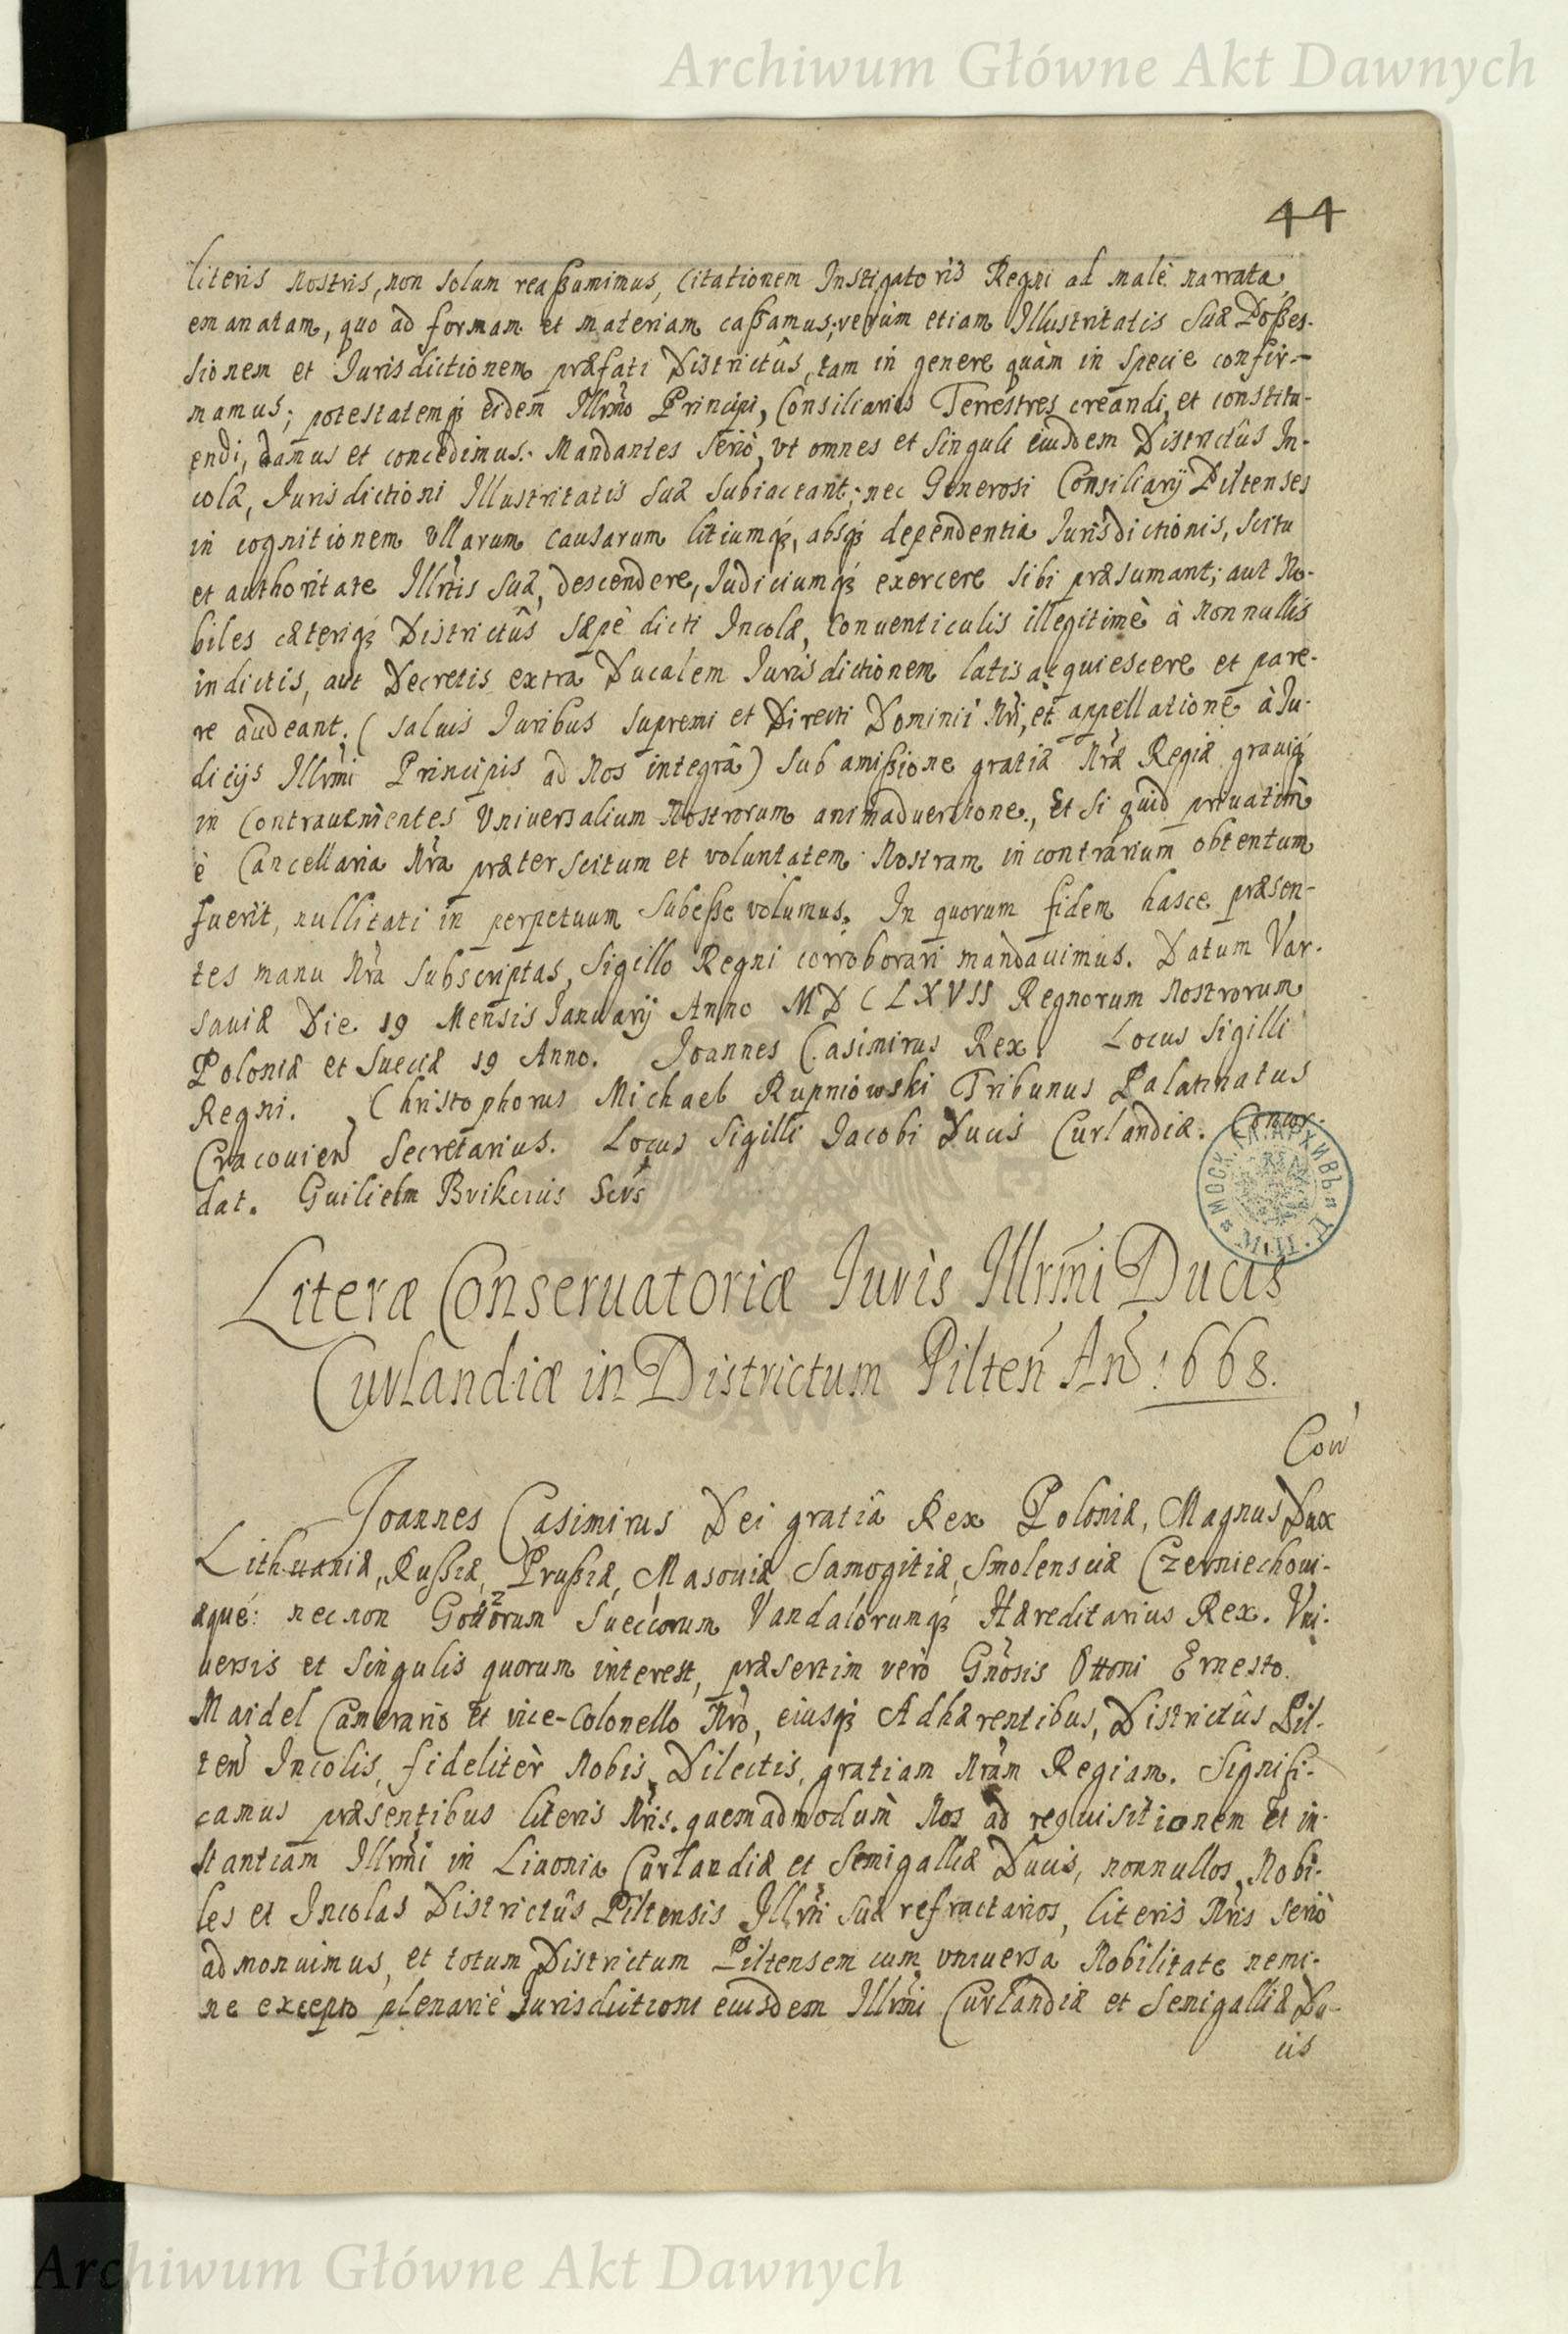 Archiwum Główne Akt Dawnych
44
literis nostris, non solum reaßumimus, Citationem Instigatoris Regni ad malè narrata
emanatam, quo ad formam et materiam caßamus; verùm etiam Illustritatis Suæ Poßes-
sionem et Jurisdictionem præfati Districtûs, tam in genere quàm in specie confir-
mamus; potestatemq́ eidem Illrmo Principi, Consiliarios Terrestres creandi, et constitu-
endi, damus et concedimus. Mandantes seriò, vt omnes et singuli eiusdem Districtûs In-
colæ, Jurisdictioni Illustritatis Suæ subiaceant; nec Generosi Consiliarij Piltenses
in cognitionem vllarum causarum litiumq́, absq́ dependentia Jurisdictionis, scitu
et authoritate Illrtis Suæ, descendere, Judiciumq́ exercere sibi præsumant; aut No-
biles cæteriq́ Districtûs sæpè dicti Incolæ, Conuenticulis illegitimè à nonnullis
indictis, aut Decretis extra Ducalem Jurisdictionem latis acquiescere et pare-
re audeant. (saluis Juribus supremi et Directi Dominii Nri, et appellatione à Ju-
dicijs Illrmi Principis ad Nos integrâ) sub amißione gratiæ Nræ Regiæ grauiq́
in Contrauenientes Vniuersalium Nostrorum animaduersione, Et si quid priuatim
è Cancellaria Nra præter scitum et voluntatem Nostram in contrarium obtentum
fuerit, nullitati in perpetuum subeße volumus. In quorum fidem hasce præsen-
tes manu Nra subscriptas, Sigillo Regni corroborari mandauimus. Datum Var-
sauiæ Die 19 Mensis Januarij Anno MDCLXVII Regnorum Nostrorum
Poloniæ et Sueciæ 19 Anno. Joannes Casimirus Rex. Locus Sigilli
Regni. Christophorus Michael Rupniowski Tribunus Palatinatus
Cracouien Secretarius. Locus Sigilli Jacobi Ducis Curlandiæ. Concor-
dat. Guilielm Bvikcuis Scrs
Literæ Conseruatoriæ Juris Illrmi Ducis
Curlandiæ in Districtum Pilten Ano 1668.
Con
Joannes Casimirus Dei gratiâ Rex Poloniæ, Magnus Dux
Lithuaniæ, Rußiæ, Prußiæ, Masouiæ Samogitiæ, Smolensciæ Czerniechoui-
æque: necnon Gottorum Sueccorum Vandalorumq́ Hæreditarius Rex. Vni-
uersis et singulis quorum interest, præsertim verò Gnosis Ottoni Ernesto
Maidel Camerario et vice-Colonello Nro, eiusq́ Adhærentibus, Districtûs Pil-
ten Incolis, fidelitèr Nobis Dilectis, gratiam Nram Regiam. Signifi-
camus præsentibus literis Nris. quemadmodum Nos ad requisitionem et in-
stantiam Illrmi in Liuonia Curlandiæ et Semigalliæ Ducis, nonnullos Nobi-
les et Incolas Districtûs Piltensis Illrmi Suæ refractarios, literis Nris seriò
admonuimus, et totum Districtum Piltensem cum vniuersa Nobilitate nemi-
ne excepto plenariè Jurisdictioni eiusdem Illrmi Curlandiæ et Semigalliæ Du-
cis
Archiwum Główne Akt Dawnych